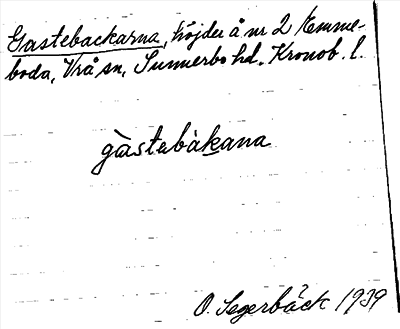 Gastebackarna, höjder å nr 2 Emme-
boda, Vrå sn, Sunnerbo hd. Kronob. l.
gàstebàkana
O. Segerbäck 1939